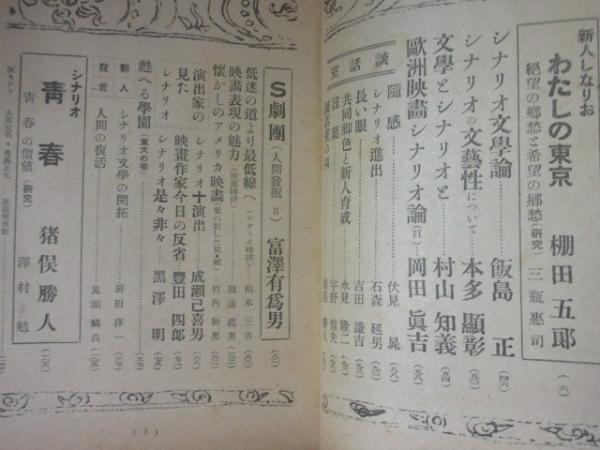 新人しなりお
わたしの東京 棚田五郎 (六)
絶望の郷愁と希望の郷愁(研究) 三瓶惠司
シナリオ文學論 飯島正
シナリオの文藝性について 本多顯彰
文學とシナリオと 村山知義
歐洲映畫シナリオ論 岡田眞吉
談話室
隨感 伏見晁
シナリオ進出 石森延男
長い眼 吉田謙吉
共同脚色と新人育成 永見隆二
言葉 宇野信夫
S劇團(人間發掘 B) 富澤有爲男
低迷の道より最低線へ(シナリオ時評) 柏木三吉
映畫表現の魅力 田邊虎男
懷かしのアメリカ映畫 竹内幹男
演出家の見たシナリオ
シナリオ十演出 成瀬己喜男
映畫作家今日の反省 豐田四郎
シナリオ是々非々 黑澤明
甦へる學園
新人發言
シナリオ文學の開拓 岩田洋一
人間の復活
シナリオ
青春 猪俣勝人
青春の價値(研究) 澤村勉
(3)